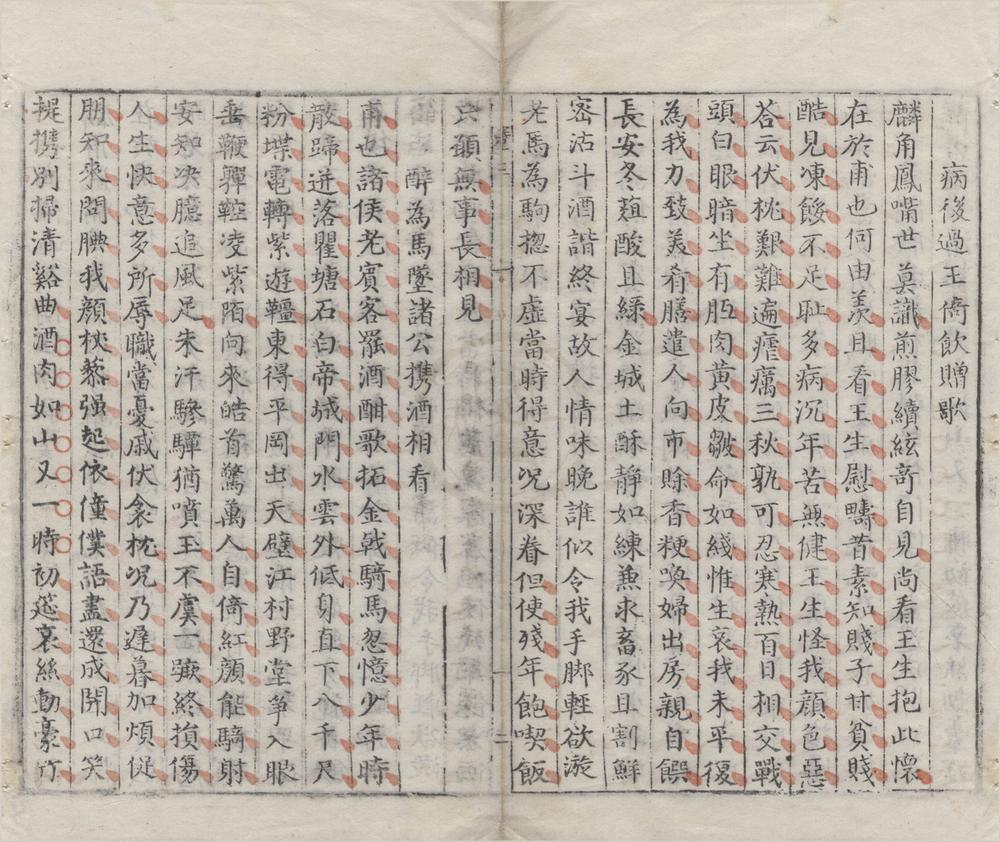 病後過王倚飲贈歌
麟角鳳嘴世莫識煎膠續絃奇自見尚看王生抱此懷
在於甫也何由羨且看王生慰疇昔素知賤子甘貧賤
酷見凍餒不足耻多病沉年苦無健王生怪我顏色惡
荅云伏枕艱難遍瘧癘三秋孰可忍寒熱百日相交戰
頭白眼暗坐有胝肉黃皮皺命如綫惟生哀我未平復
為我力致美肴膳遣人向市賖香粳喚婦出房親自饌
長安冬菹酸且緑金城土酥靜如練兼求畜豕且割鮮
宻沽斗酒諧終宴故人情味晚誰似令我手脚輕欲漩
老馬為駒揔不虛當時得意况深眷但使殘年飽喫飯
只願無事長相見
醉為馬墜諸公携酒相看
甫也諸侯老賓客罷酒酣歌拓金戟騎馬忽憶少年時
散蹄迸落瞿塘石白帝城門水雲外低身直下八千尺
粉堞電轉紫遊韁東得平岡出天壁江村野堂爭入眼
垂鞭嚲鞚凌紫陌向來皓首驚萬人自倚紅顏能騎射
安知决臆追風足朱汗驂驒猶噴玉不虞一蹶終損傷
人生快意多所辱職當憂戚伏衾枕况乃遲暮加煩促
朋知來問腆我顏杖藜强起依僮僕語盡還成開口笑
提携別掃清谿曲酒肉如山又一時初筵哀絲動豪竹